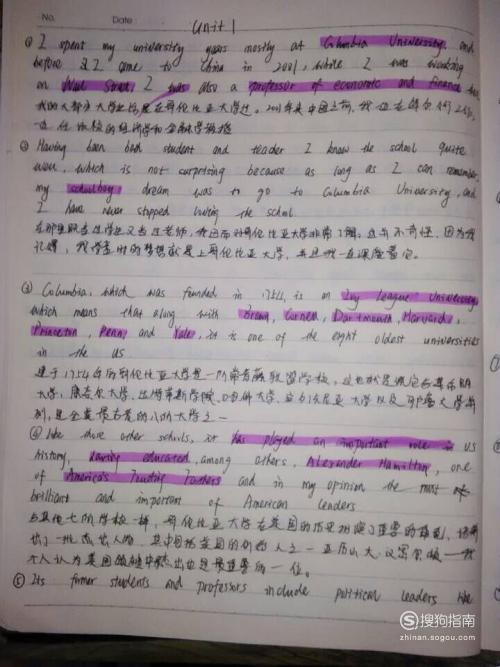 No.
Date:
Unit 1
① I spent my university years mostly at Columbia University, and
before I came to China in 2001, while I was working
on Wall Street, I was also a professor of economic and finance
我的大部分大学时光是在哥伦比亚大学过。2001年来中国之前，我
② Having been both student and teacher I know the school quite
well, which is not surprising because as long as I can remember
my schoolboy dream was to go to Columbia University, and
I have never stopped loving the school.
在那里既当过学生又当过老师，我 对哥伦比亚大学非常了解，这并不奇怪，因为我
记得，我学童时的梦想就是上哥伦比亚大学，并且我一直深爱着它。
③ Columbia, which was funded in 1754, is an Ivy League University
which means that along with Brown, Cornell, Dartmouth, Harvard,
Princeton, Penn and Yale, it is one of the eight oldest universities
in the US
建于1754年的哥伦比亚大学是一所常青藤联盟学校，这也就是说它与布朗
大学，康奈尔大学、达特茅斯学院、哈佛大学、 大学以及耶鲁大学并
列，是全美最古老的八所大学之一
④ like those other schools, it has played an important role in US
history, having educated, among others, Alexander Hamilton, one
of America's Founding Fathers and in my opinion the most
brilliant and important of American leaders
与其他七所学校一样，哥伦比亚大学在美国的历史扮演了重要的角色，培养
出了一批杰出人物，其中包括美国的 人之一亚历山大·汉密尔顿——我
个人认为美国领袖中最杰出也是最重要的一位。
⑤ Its former students and professors include political leaders like
S 搜狗指南
zhinan.sogou.com